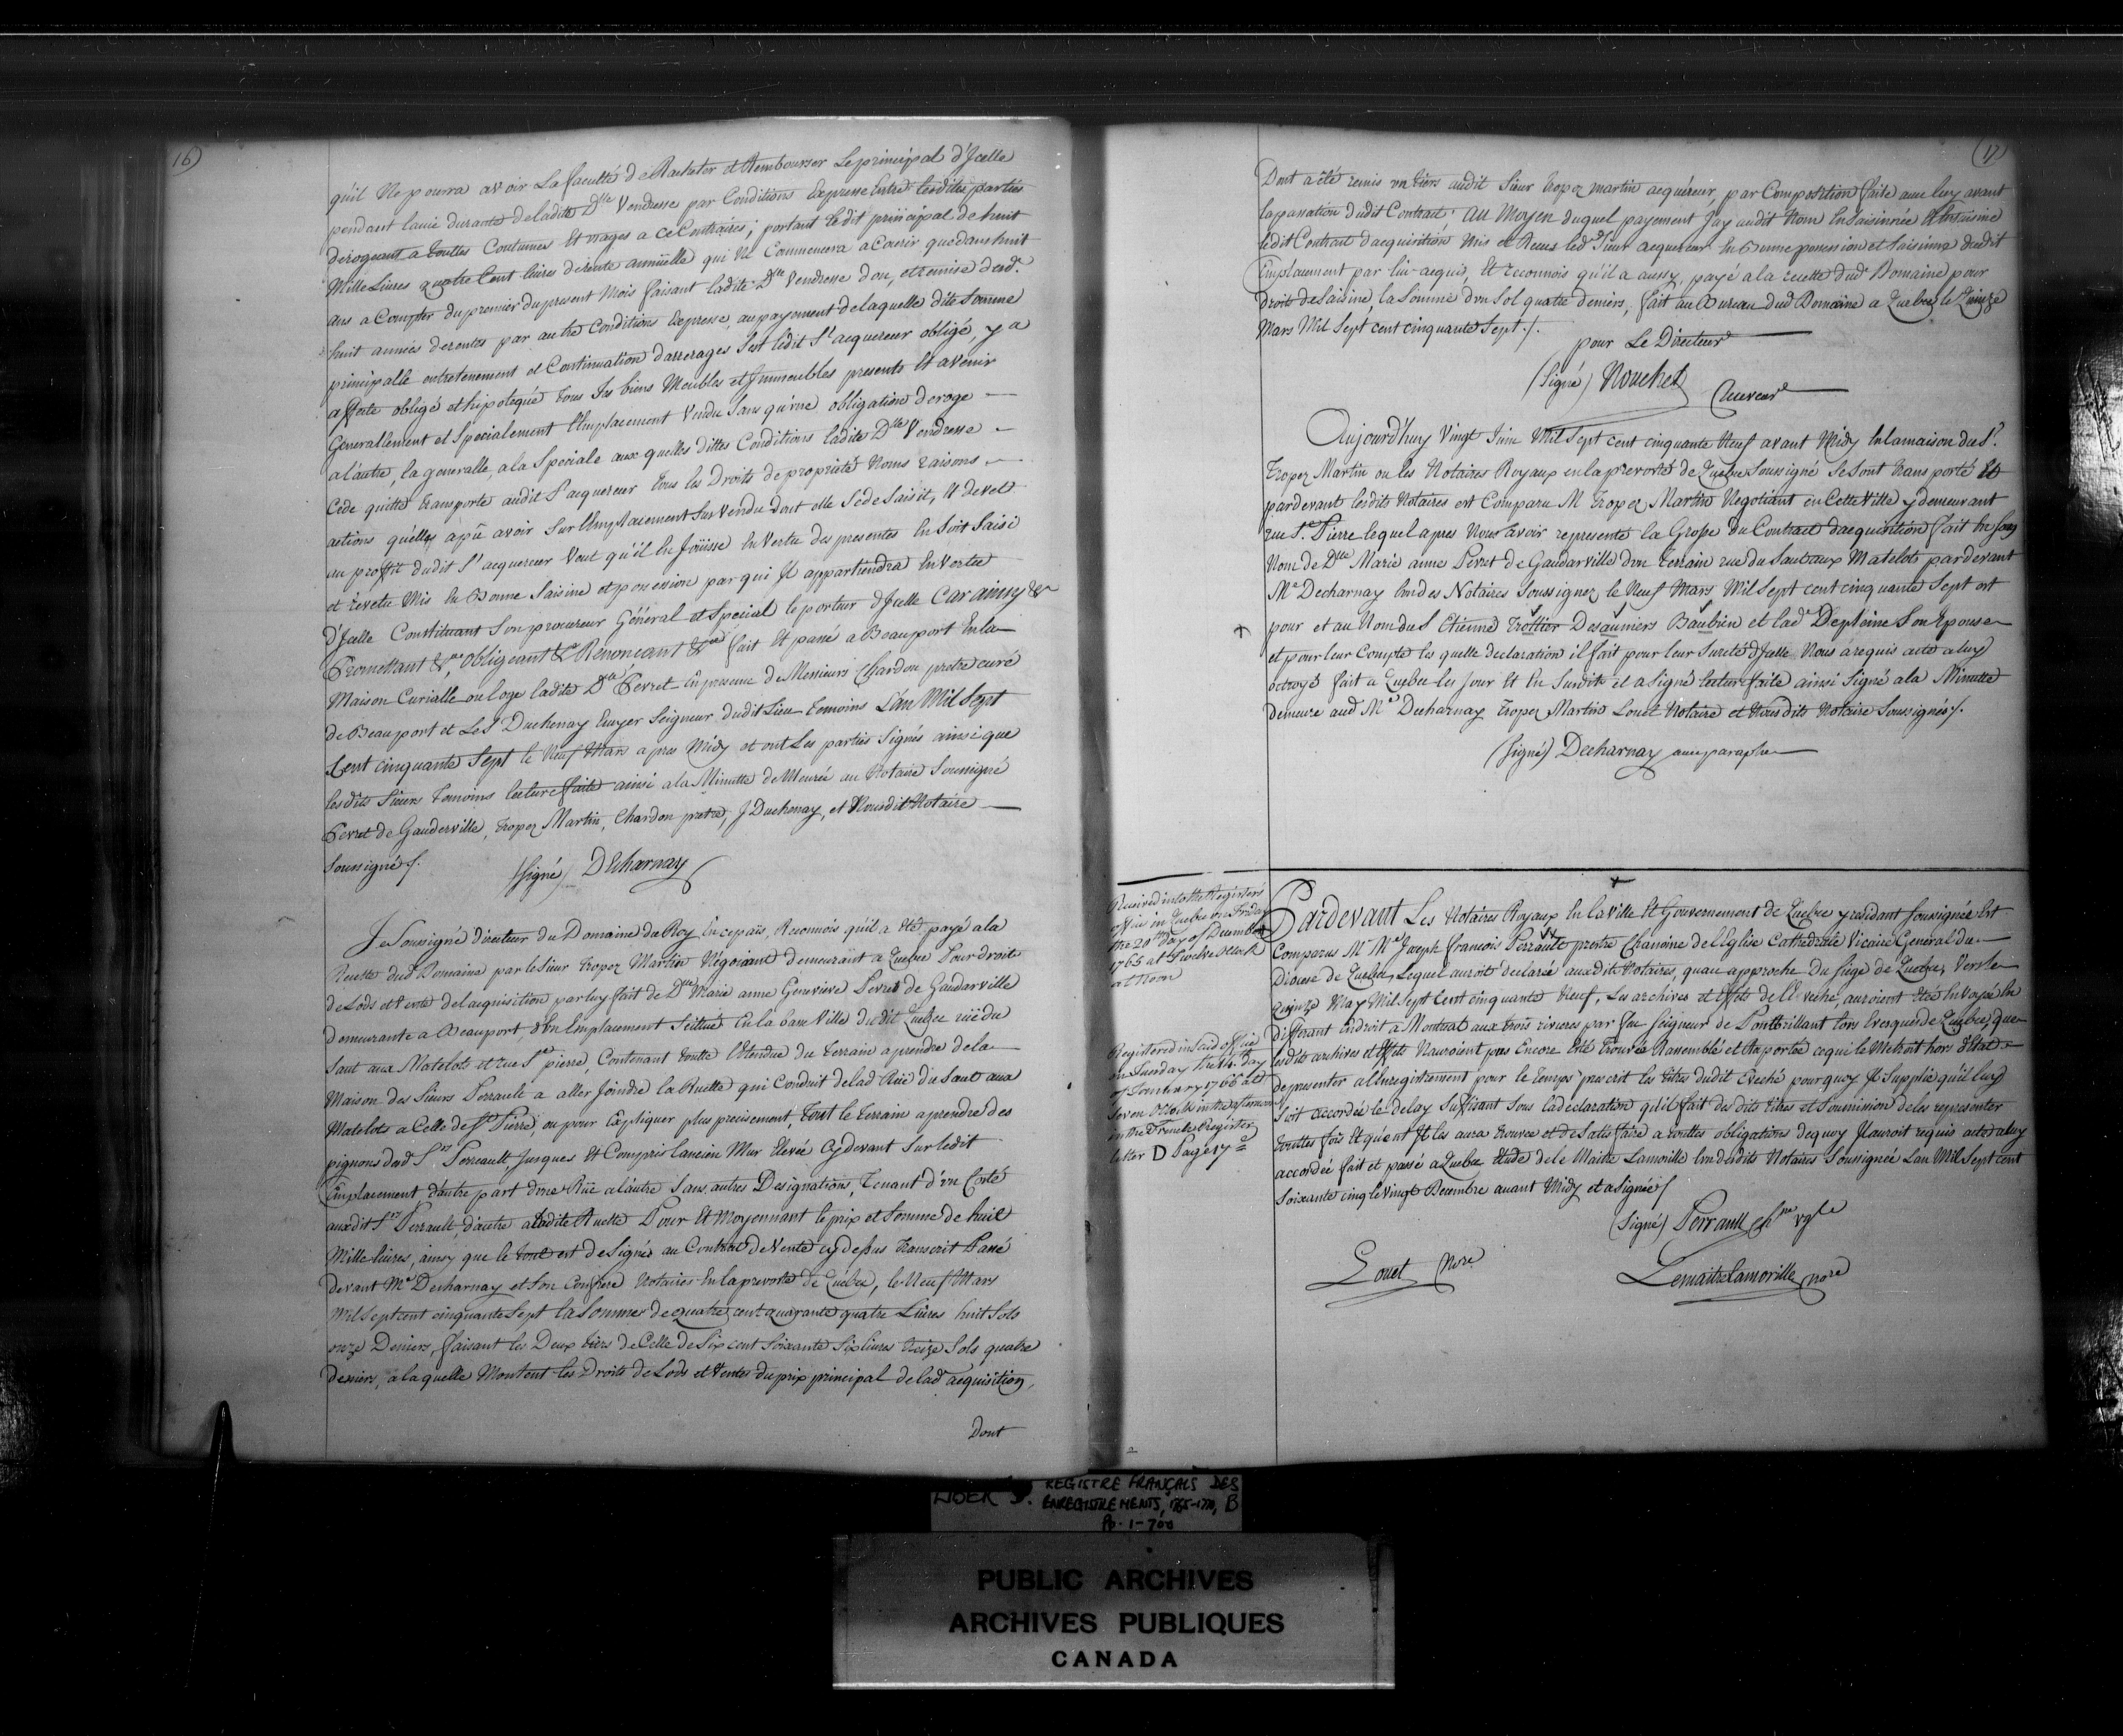 16)
qu'il Ne pourra avoir La faculté de Racheter et Rembourser Le principal d'Jcelle
pendant la vie durante de ladite Dlle Vendresse par Conditions Expresse Entre lesdites parties
derogeant a touttes Coutumes Et usages a ce Contraires; portant ledit principal de huit
Mille Livres quatre Cent livres de rente annüelle qui Ne Commencera a Courir que dans huit
ans a Compter du premier du present Mois faisant ladite Dlle Vendresse don, et remise desd.
huit années de rentes par autre Conditions Expresse, au payement de laquelle dite Somme
principalle entretenement et Continuation darrerages S'est ledit Sr acquereur obligé, y a
affecté obligé et hipotequé tous Ses biens Meubles et Jmmeubles presents Et avenir
Generallement et Specialement l'Emplacement Vendu Sans qu'une obligation deroge
a l'autre, la generalle, a la Speciale aux quelles dittes Conditions ladite Dlle Vendresse
Cede quitte transporte audit Sr acquereur tous les Droits de propriété Noms raisons
actions qu'elle a pû avoir Sur l'Emplacement Sus vendu dont elle S'e de Saisit, Et devet
au proffit dudit Sr acquereur Veut qu'il En Joüisse En Vertu des presentes En Soit Saisi
et revetu Mis En Bonne Saisine et possession par qui Jl appartiendra En Vertu
d'Jcelle Constituant Son procureur Général et Special le porteur d'Jcelle Car ainsy &a
Promettant &a, obligeant &a Renonçant &a fait Et passé a Beauport En la
Maison Curialle ou loge ladite Dlle Pevret En presence de Messieurs Chardon pretre curé
de Beauport et Le Sr Duchenay Ecuyer Seigneur dudit Lieu temoins L'an Mil Sept
Cent cinquante Sept le Neuf Mars apres Midy et ont Les parties Signés ainsi que
lesdits Sieurs temoins lecture faite ainsi a la Minutte demeurée au Notaire Soussigné
Pevret de Gauderville, tropez Martin, Chardon prêtre, J Duchenay, et Nousdit Notaire
Soussigné /.
(Signé) Decharnay
Je Soussigné directeur du Domaine du Roy En ce païs, Reconnois qu'il a Eté payé a la
Recette dud Domaine par le Sieur tropez Martin Négociant demeurant a Quebec Pour droits
de Lods et Vente de l'acquisition par luy fait de Dlle Marie anne Génevieve Pevret de Gaudarville
demeurante a Beauport, d'Un Emplacement Scittué En la basse Ville dudit Quebec rüe du
Saut aux Matelots et rue St pierre, Contenant toutte l'Etendue du terrain a prendre de la
Maison des Sieurs Perrault a aller Joindre la Ruelle qui Conduit de lad Rüe du Saut aux
Matelots a Celle de St Pierre, ou pour Expliquer plus precisement, tout le terrain a prendre des
pignons desd Srs Perreault, Jusques Et Compris l'ancien Mur Elevée Cy devant Sur ledit
Emplacement, d'autre part d'une Rüe a l'autre Sans autres Designations, Tenant d'un Coté
auxdit Srs Perrault, d'autre a ladite Ruelle Pour Et Moyennant le prix et Somme de huit
Mille livres, ainsy que le tout est designé au Contrat de Vente cy dessus transcrit Passé
devant Me Decharnay et Son Confrere Notaires En la prevoté de Quebec, le Neuf Mars
Mil Sept cent cinquante Sept la Somme de quatre cent Quarante quatre Livres huit Sols
onze Deniers, faisant les Deux tiers de Celle de Six cent Soixante Six livres treize Sols quatre
deniers, a laquelle Montent les Droits de Lods et Ventes du prix principal de lad acquisition,
Dont
(17
Dont a été remis un tiers audit Sieur tropez martin acquéreur, par Composition faite avec luy avant
la passation dudit Contract. Au Moyen duquel payement Jay audit Nom Ensaisinnée Et Ensaisine
ledit Contrat d'acquisition Mis et Recus led Sieur acquereur En Bonne possession et Saisinne dudit
Emplacement par lui acquis, Et reconnois qu'il a aussy, payé a la recette dud Domaine pour
droits de Saisine la Somme d'un Sol quatre deniers, fait au Bureau dud Domaine a Quebec le Quinze
Mars Mil Sept cent cinquante Sept./.
pour Le Directeur
(Signé) Nouchet
Receveur
Aujourd'huy Vingt Juin Mil Sept cent cinquante Neuf avant Midy En la maison du Sr.
Tropez Martin ou les Notaires Royaux en la prevoté de Quebec Soussigné Se Sont transporté Et
pardevant lesdits Notaires est Comparu M Tropez Martin Negotiant en Cette Ville y demeurant
rue St. Pierre lequel apres Nous avoir representé la Grosse du Contract d'acquisition fait En Son
Nom de Dlle Marie anne Pevret de Gaudarville d'un Terrain rue du Saut aux Matelots pardevant
Me Decharnay l'un des Notaires Soussignez le Neuf Mars Mil Sept cent cinquante Sept est
pour et au Nom du S Etienne Trottier Desauniers Baubien et lad Depleine Son Epouse
et pour leur Compte les quelle declaration il fait pour leur Sureté d'Jcelle Nous a requis acte a luy
octroyé fait a Quebec les Jour Et En Susdits il a Signé lecture faite ainsi Signé a la Minutte
demeuré aud Me Decharnay Tropez Martin Louet Notaire et Nous dits Notaire Soussignés/.
(Signé) Decharnay avec paraphe
Received into the Registers
office in Quebec on Friday
the 20th Day of December
1765 at Twelve o'Clock
at Noon
Registered in said office
on Tuesday the 14th Day
of January 1766 at
Seven o'Clock in the afternoon
in the French Register
letter D Page 17
Pardevant Les Notaires Royaux En la Ville Et Gouvernement de Quebec y residant Soussignée Est
Comparus Mr Me Joseph francois Perrault prestre Chanoine de l'Eglise Cathedrale Vicaire General du
Diocese de Quebec, Lequel auroit declarée auxdits Notaires, quau approche du Siége de Quebec, Vers le
Quinze May Mil Sept Cent cinquante Neuf, Les archives et Effets de l'Eveché, auroient Eté Envoyé En
differant Endroit a Montreal aux trois rivieres par feu Seigneur de Pontbrillant lors Evesque de Quebec, que
lesdits archives et Effets N'auroient pas Encore Eté Trouvée Rassemblé et Raportée ce qui le Metroit hors d'Etat
de presenter a l'Enregistrement pour le temps prescrit les titres dudit Eveché pourquoy Jl Supplie qu'il luy
Soit accordée le delay Suffisant Sous la declaration qu'il fait des dits titres et Soumission de les representer
touttes fois Et quant Jl les aura trouvée et de Satisfaire a touttes obligations dequoy Jl auroit requis acte a luy
accordée fait et passé a Quebec Etude de le Maitre Lamorille l'un desdits Notaires Soussignée L'an Mil Sept cent
Soixante cinq le Vingt Decembre avant Midy et a Signée /
(Signé) Perrault chne vgle
Louet Nore
Lemaitre Lamorille nore
LIBER D. REGISTRE FRANÇAIS DES
ENREGISTREMENTS, 1765-1770, B
Pp. 1-700
PUBLIC ARCHIVES
ARCHIVES PUBLIQUES
CANADA